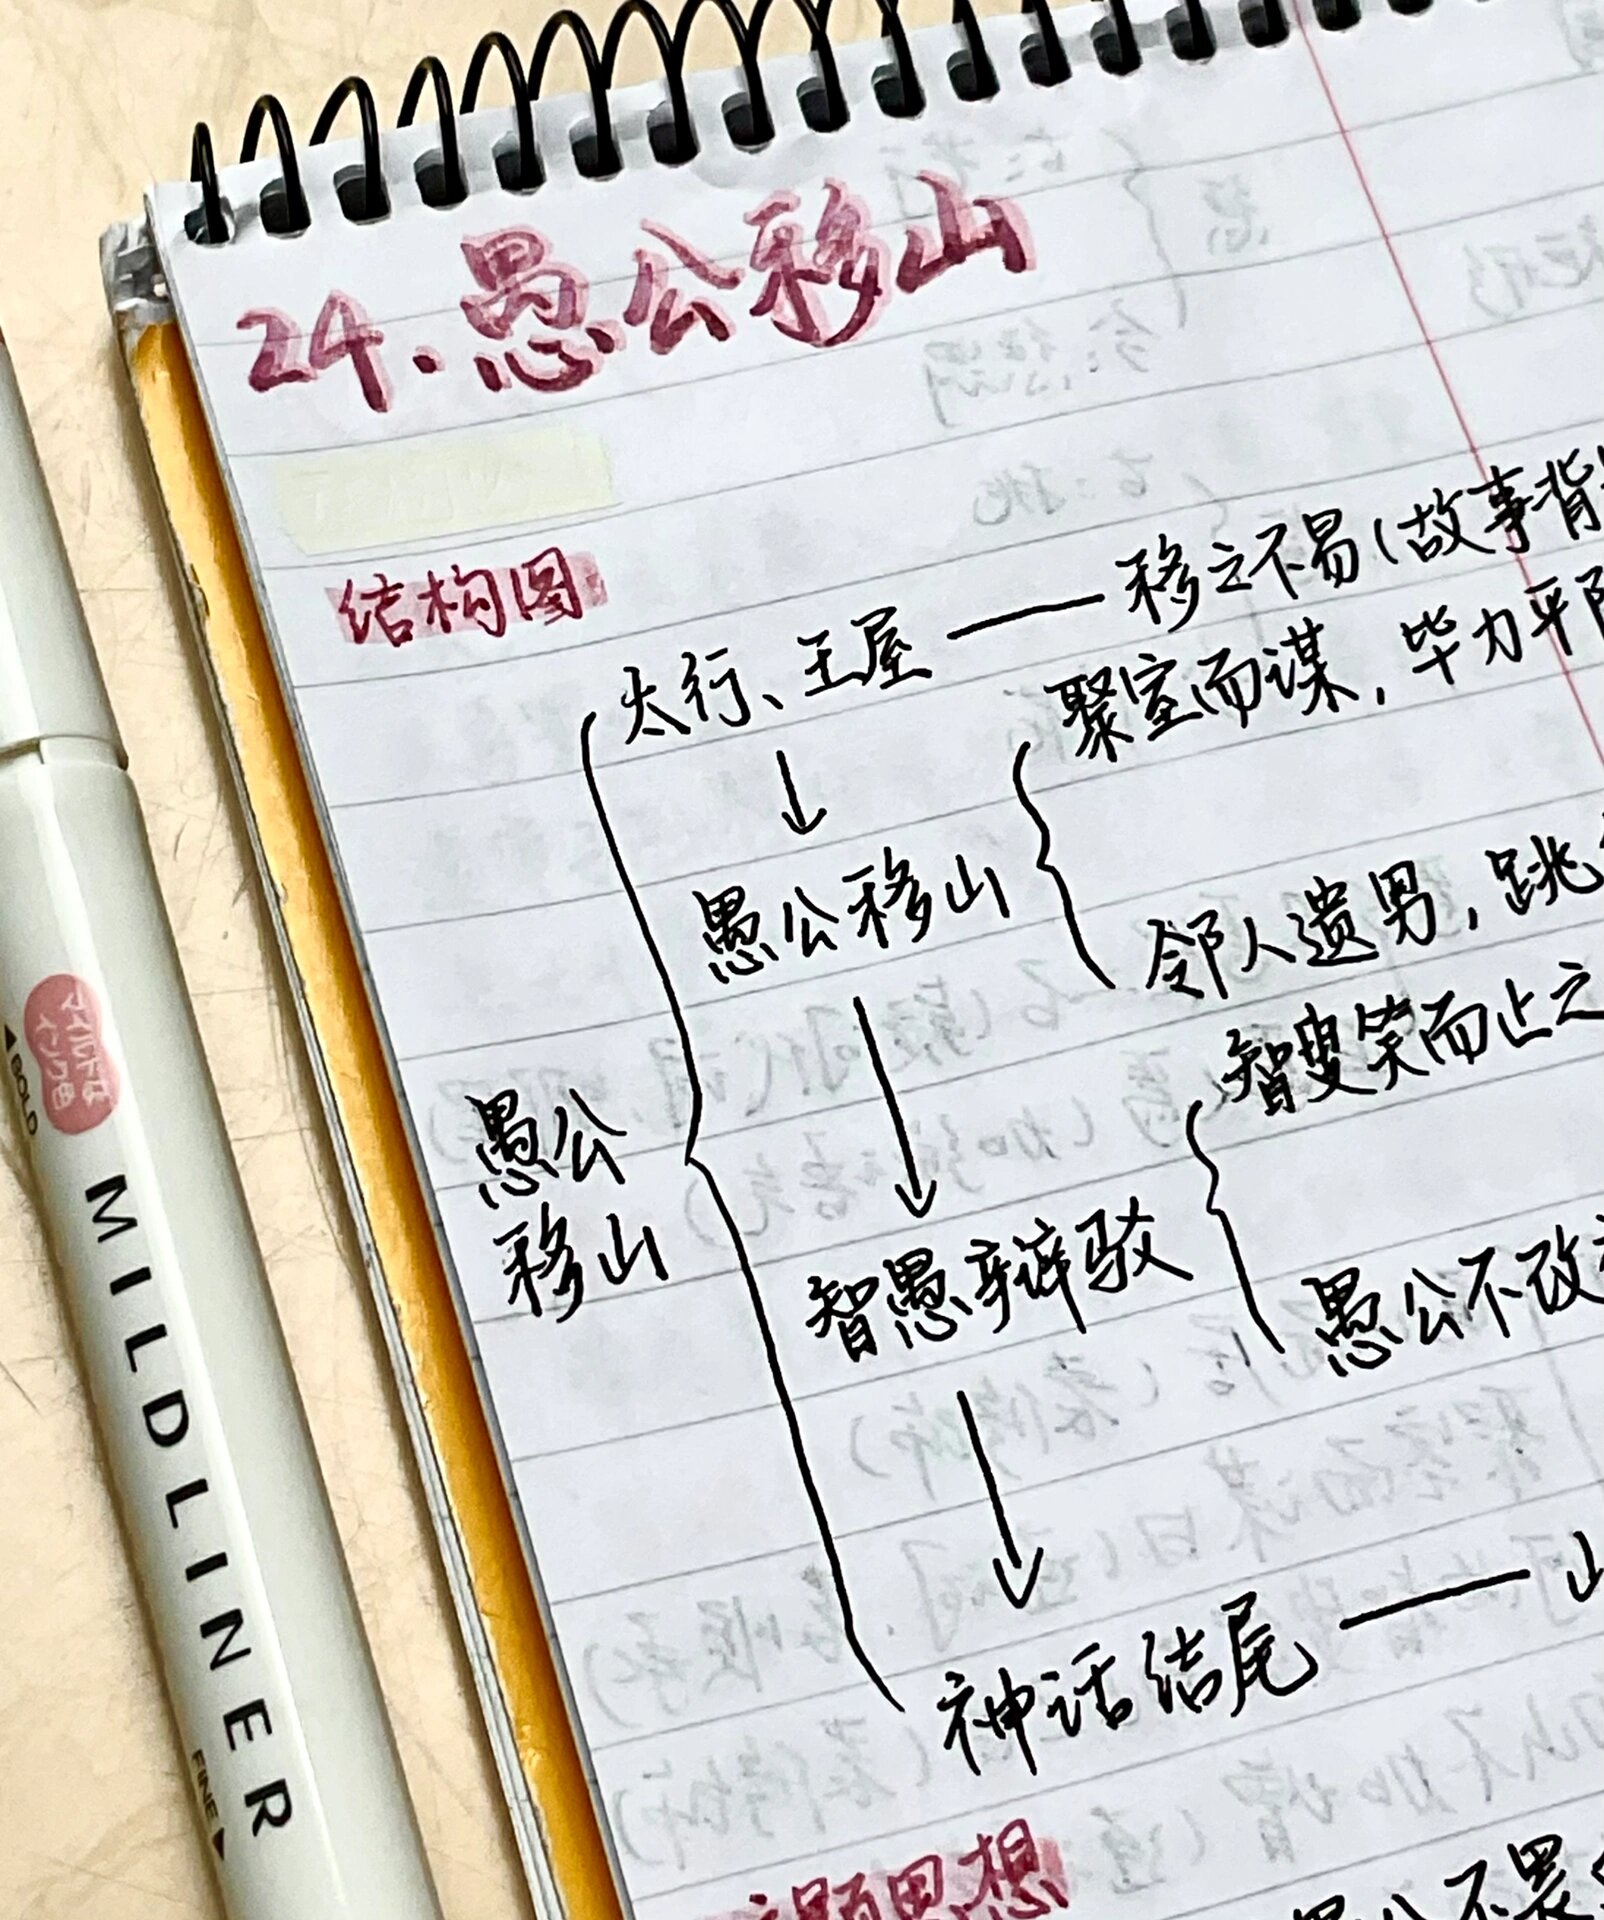 24.愚公移山
结构图
太行、王屋——移之不易(故事背
聚室而谋,毕力平
愚公移山
邻人遗男,跳
智叟笑而止之
愚公
移山
智愚辩驳
愚公不改
神话结尾——山
主题思想
愚公不畏
マイルドな
インク色
BOLD
MILDLINER
FINE